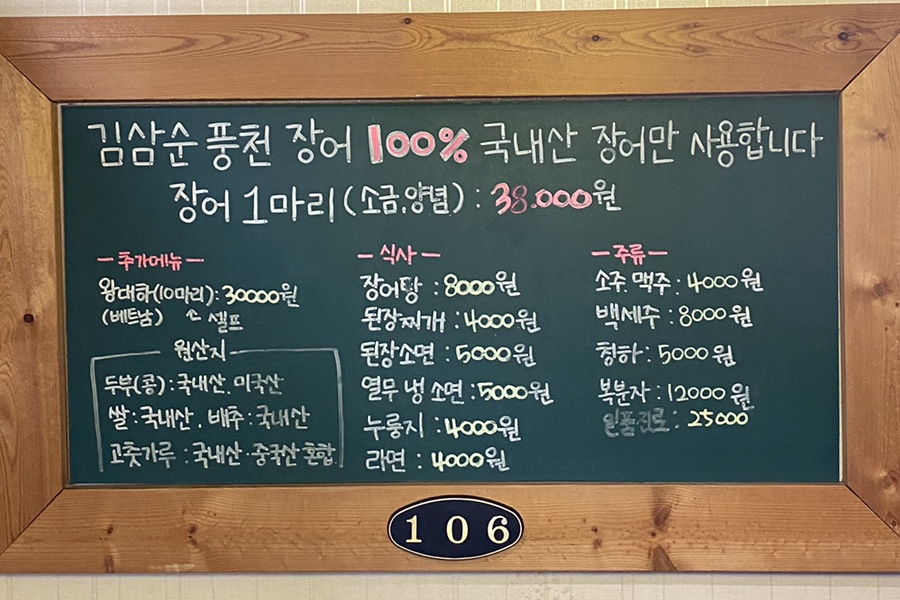 김삼순 풍천 장어 100% 국내산 장어만 사용합니다
장어 1마리(소금.양념) : 38.000원
- 추가메뉴 -
왕대하(10마리): 30000원
(베트남) 셀프
원산지
두부(콩): 국내산. 미국산
쌀: 국내산. 배추: 국내산
고춧가루 : 국내산·중국산 혼합
- 식사 -
장어탕 : 8000원
된장찌개 : 4000원
된장소면 : 5000원
열무 냉 소면 : 5000원
누룽지 : 4000원
라면 : 4000원
- 주류 -
소주. 맥주 : 4000원
백세주 : 8000원
청하 : 5000원
복분자 : 12000원
일품진로 : 25000
106